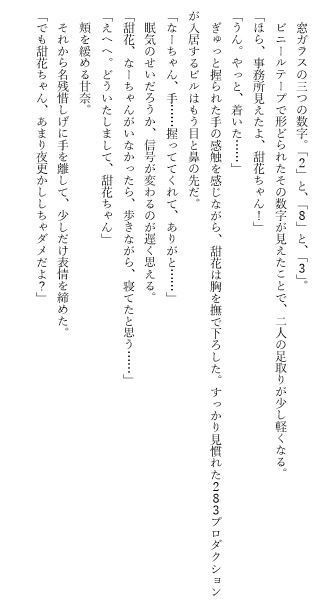 窓ガラスの三つの数字。「2」と、「8」と、「3」。
ビニールテープで形どられたその数字が見えたことで、二人の足取りが少し軽くなる。
「ほら、事務所見えたよ、甜花ちゃん！」
「うん。やっと、着いた……」
ぎゅっと握られた手の感触を感じながら、甜花は胸を撫で下ろした。すっかり見慣れた283プロダクション
が入居するビルはもう目と鼻の先だ。
「なーちゃん、手……握っててくれて、ありがと……」
眠気のせいだろうか、信号が変わるのが遅く思える。
「甜花、なーちゃんがいなかったら、歩きながら、寝てたと思う……」
「えへへ。どういたしまして、甜花ちゃん」
頬を緩める甘奈。
それから名残惜しげに手を離して、少しだけ表情を締めた。
「でも甜花ちゃん、あまり夜更かししちゃダメだよ？」